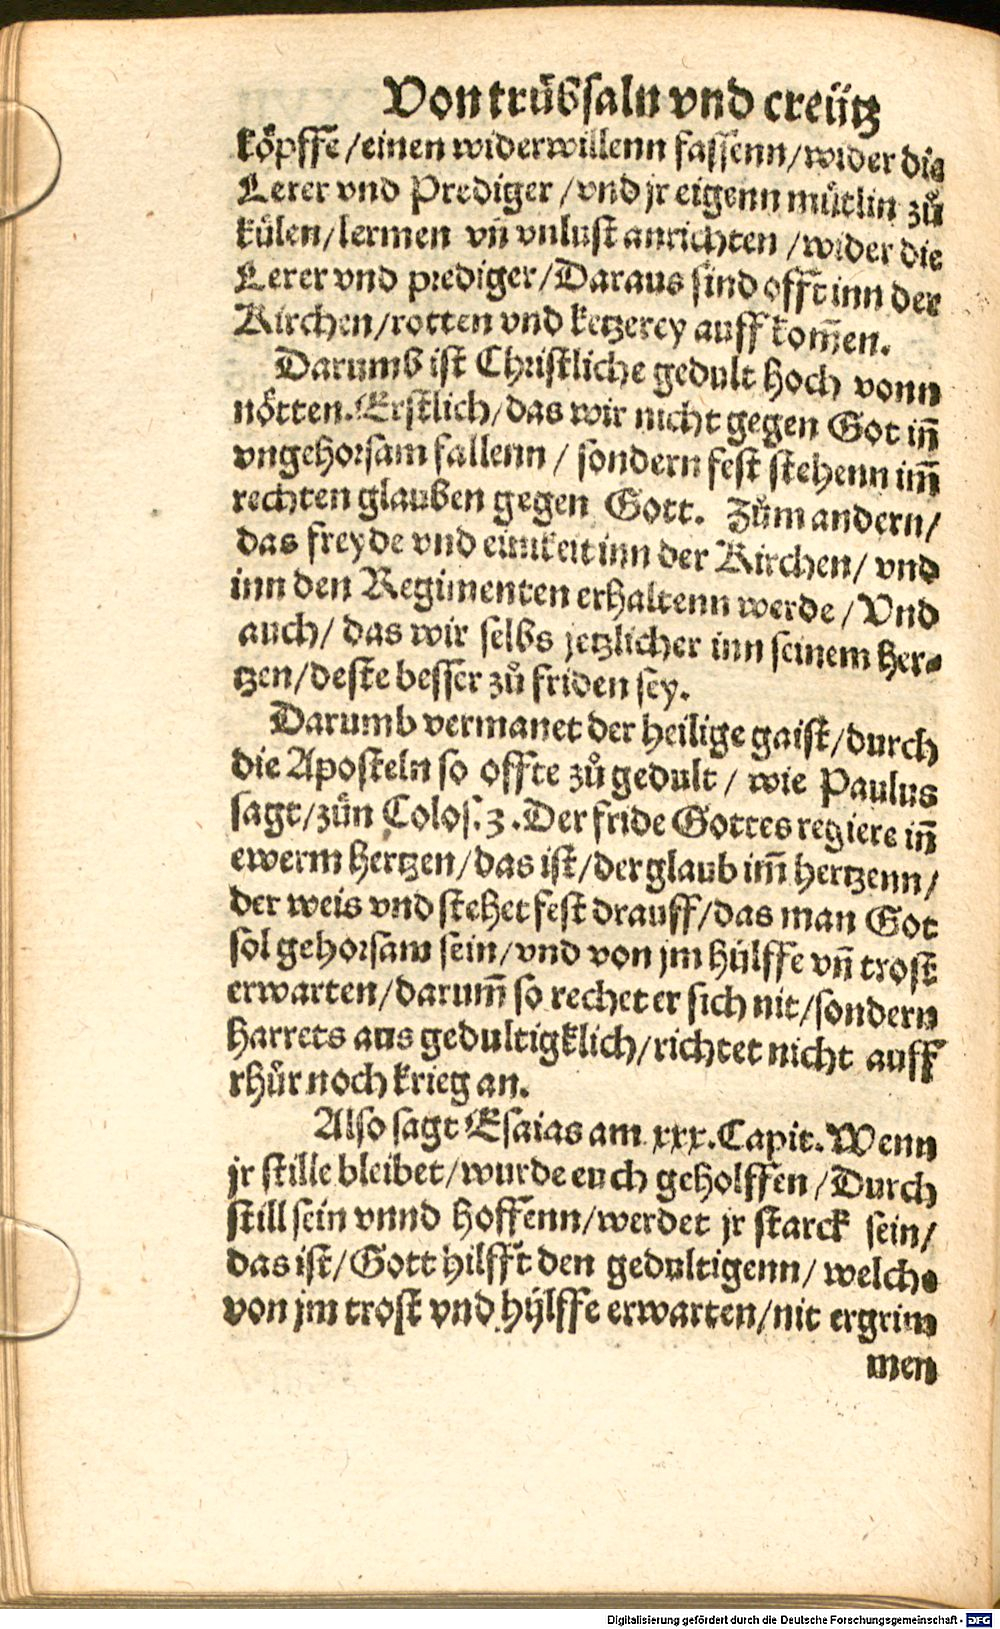 Von trübsaln vnd creütz
köpffe/einen widerwillenn fassenn/wider die
Lerer vnd Prediger /vnd jr eigenn mütlin zů
külen/lermen vñ vnlust anrichten /wider die
Lerer vnd prediger/Daraus sind offt inn der
Kirchen/rotten vnd ketzerey auff kom̄en.
Darumb ist Christliche gedult hoch vonn
nötten. Erstlich/das wir nicht gegen Got iñ
vngehorsam fallenn / sondern fest stehenn im̄
rechten glauben gegen Gott. Zům andern/
das freyde vnd einikeit inn der Kirchen/ vnd
inn den Regimenten erhaltenn werde /Vnd
auch/ das wir selbs jetzlicher inn seinem her⸗
tzen/deste besser zů friden sey.
Darumb vermanet der heilige gaist/durch
die Aposteln so offte zů gedult / wie Paulus
sagt/zůn Colos.3.Der fride Gottes regiere iñ
ewerm hertzen/das ist/der glaub im̄ hertzenn/
der weis vnd stehet fest drauff/das man Got
sol gehorsam sein/vnd von jm hülffe vñ trost
erwarten/darum̄ so rechet er sich nit/sondern
harrets aus gedultigklich/richtet nicht auff
rhůr noch krieg an.
Also sagt Esaias am xxx.Capit.Wenn
jr stille bleibet/wurde euch geholffen /Durch
still sein vnnd hoffenn/werdet jr starck sein/
das ist/Gott hilfft den gedultigenn/ welche
von jm trost vnd hülffe erwarten/nit ergrim
men
Digitalisierung gefördert durch die Deutsche Forschungsgemeinschaft - DFG